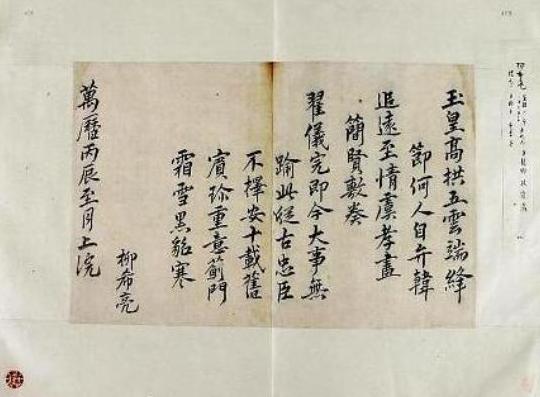 玉皇高拱五雲端絳
節何人自弁韓
追遠至情虞孝盡
簡賢敷奏
翟儀完即今大事無
踰此從古忠臣
不擇安十載舊
賓珍重意薊門
霜雪黑貂寒
萬曆丙辰至月上浣
柳希亮